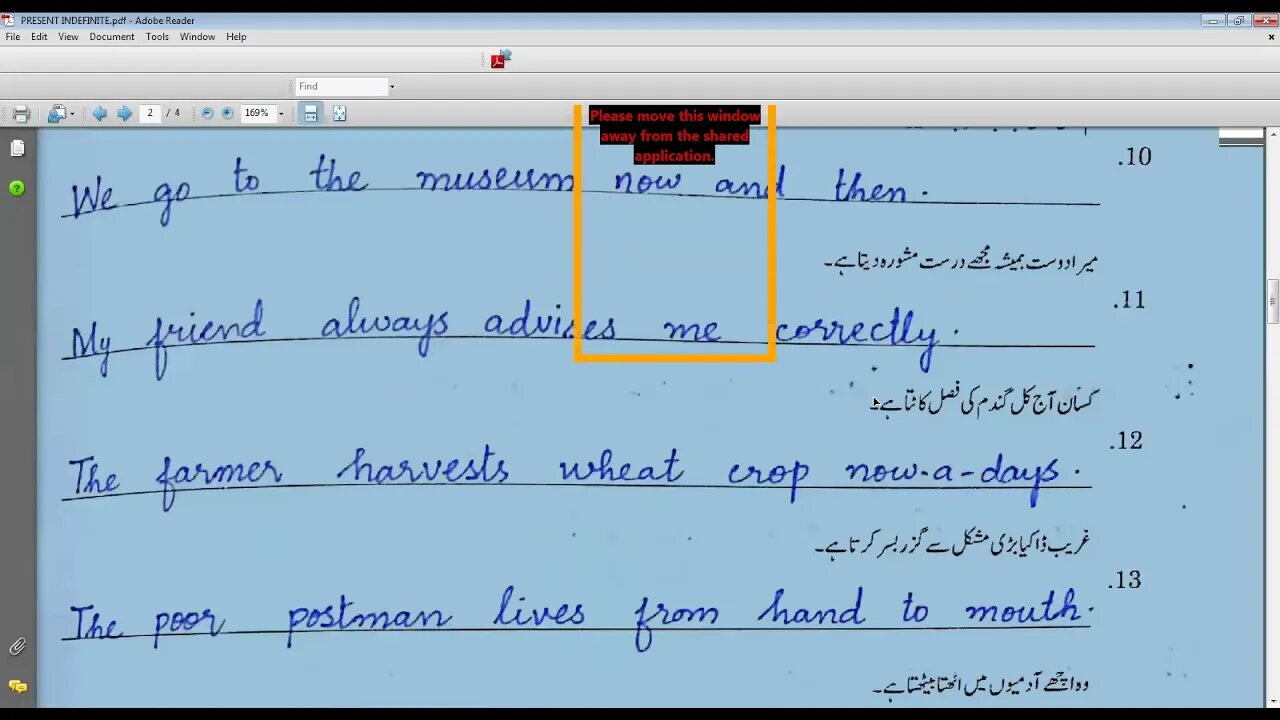 PRESENT INDEFINITE.pdf - Adobe Reader
File Edit View Document Tools Window Help
Find
2 / 4 169%
Please move this window
away from the shared
application.
.10
We go to the museum now and then.
میرا دوست ہمیشہ مجھے درست مشورہ دیتا ہے۔
.11
My friend always advises me correctly.
کسان آج کل گندم کی فصل کاٹتا ہے۔
.12
The farmer harvests wheat crop now-a-days.
غریب ڈاکیا بڑی مشکل سے گزر بسر کرتا ہے۔
.13
The poor postman lives from hand to mouth.
وہ اچھے آدمیوں میں اٹھتا بیٹھتا ہے۔